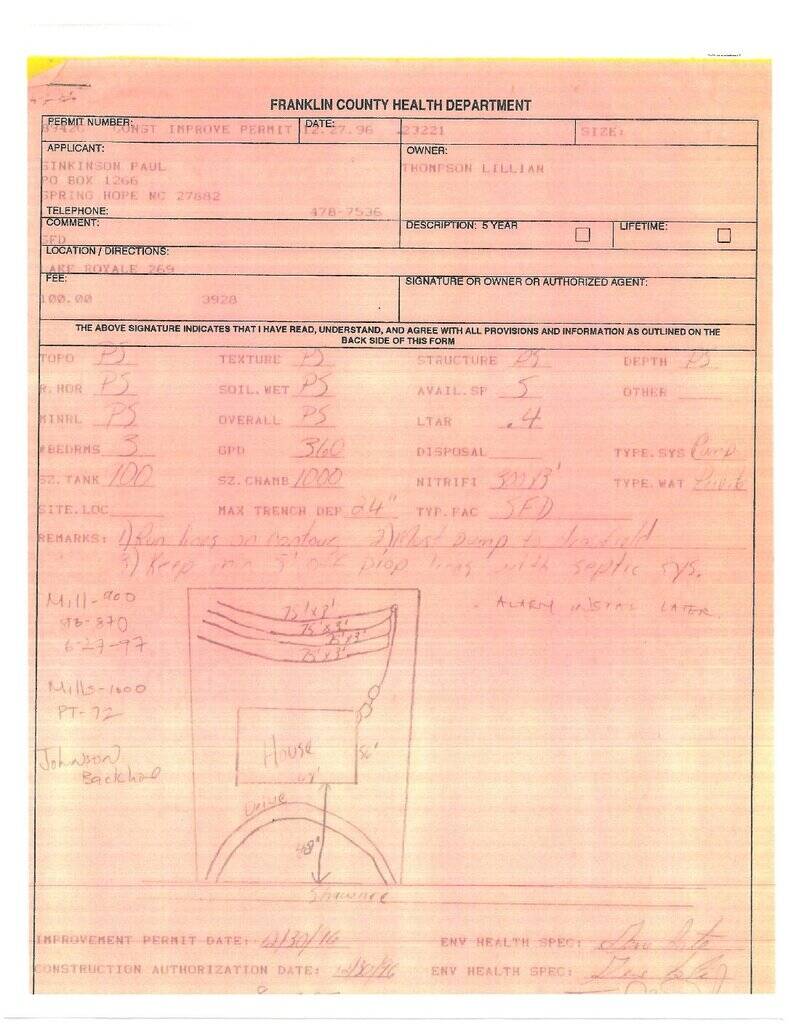 FRANKLIN COUNTY HEALTH DEPARTMENT
PERMIT NUMBER: DATE:
CONST IMPROVE PERMIT 12.27.96 23221 SIZE:
APPLICANT: OWNER:
SINKINSON PAUL THOMPSON LILLIAN
PO BOX 1266
SPRING HOPE NC 27882
TELEPHONE: 478-7536
COMMENT: DESCRIPTION: 5 YEAR LIFETIME:
SFD
LOCATION / DIRECTIONS:
LAKE ROYALE 269
FEE: SIGNATURE OR OWNER OR AUTHORIZED AGENT:
100.00 3928
THE ABOVE SIGNATURE INDICATES THAT I HAVE READ, UNDERSTAND, AND AGREE WITH ALL PROVISIONS AND INFORMATION AS OUTLINED ON THE
BACK SIDE OF THIS FORM
TOPO PS TEXTURE PS STRUCTURE PS DEPTH PS
R.HOR PS SOIL.WET PS AVAIL.SP S OTHER
MINRL PS OVERALL PS LTAR .4
#BEDRMS 3 GPD 360 DISPOSAL TYPE.SYS
SZ.TANK 100 SZ.CHAMB 1000 NITRIFI 300'X3' TYPE.WAT
SITE.LOC MAX TRENCH DEP 24" TYP.FAC SFD
REMARKS: 1) Run lines on contour 2) Must pump to drainfield
3) Keep min 5' off prop lines with septic sys.
Mill-900
STB-870
6-27-97
- ALARM INSTAL LATER
75'x3'
75'x3'
75'x3'
75'x3'
Mills-1000
PT-72
House
Johnson
Backhoe
Drive
48'
Shawnee
IMPROVEMENT PERMIT DATE: 12/30/96 ENV HEALTH SPEC:
CONSTRUCTION AUTHORIZATION DATE: 12/30/96 ENV HEALTH SPEC: